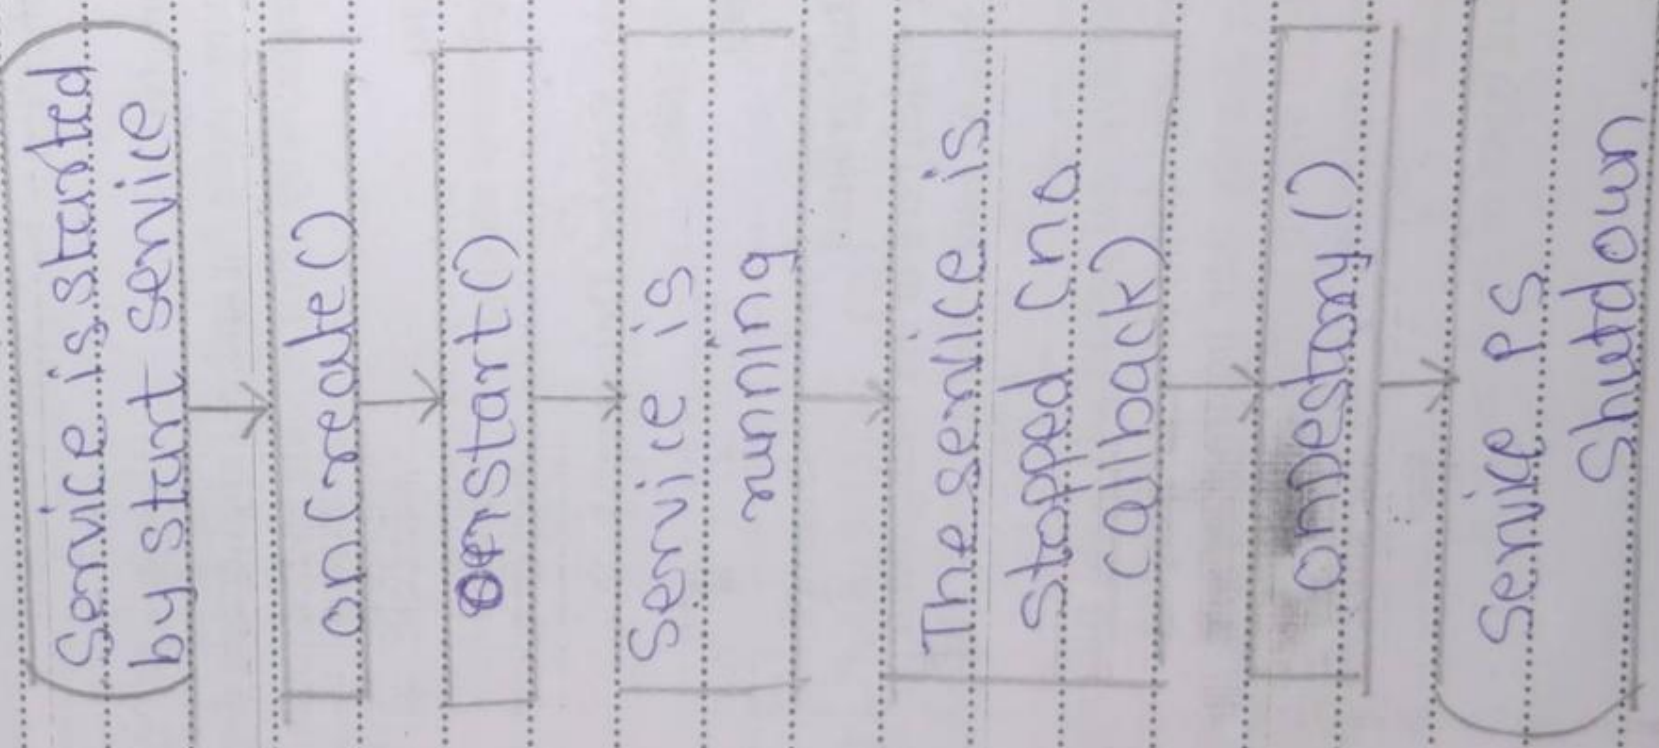 Service is started
by start service
onCreate()
onstart()
Service is
running
The service is
stopped (no
callback)
onDestory()
Service is
Shutdown